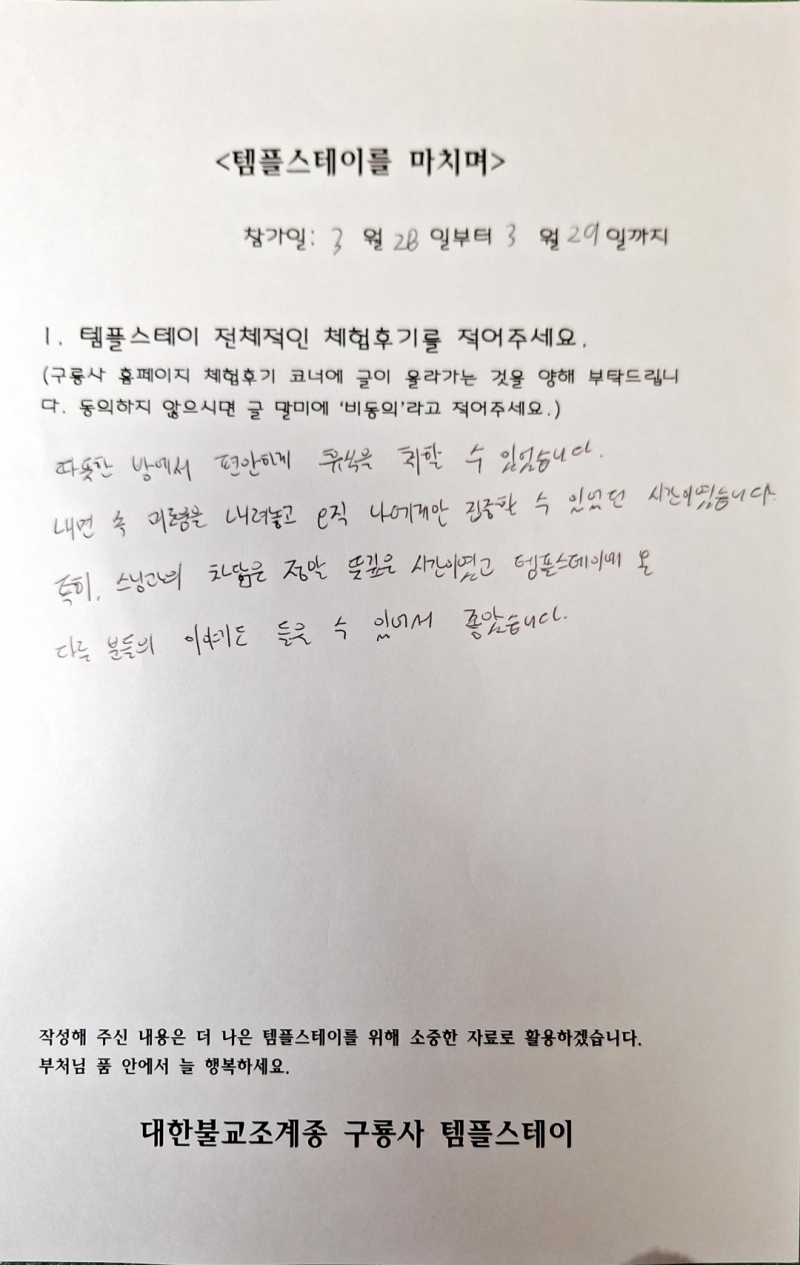 <템플스테이를 마치며>
참가일: 3 월 28 일부터 3 월 29 일까지
1. 템플스테이 전체적인 체험후기를 적어주세요.
(구룡사 홈페이지 체험후기 코너에 글이 올라가는 것을 양해 부탁드립니
다. 동의하지 않으시면 글 말미에 '비동의'라고 적어주세요.)
따뜻한 방에서 편안하게 휴식을 취할 수 있었습니다.
내면 속 괴로움을 내려놓고 오직 나에게만 집중할 수 있었던 시간이였습니다.
특히, 스님과의 차담은 정말 뜻깊은 시간이였고 템플스테이에 온
다른 분들의 이야기도 들을 수 있어서 좋았습니다.
작성해 주신 내용은 더 나은 템플스테이를 위해 소중한 자료로 활용하겠습니다.
부처님 품 안에서 늘 행복하세요.
대한불교조계종 구룡사 템플스테이